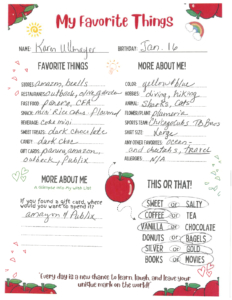 My Favorite Things
NAME: Karin Ullmeyer BIRTHDAY: Jan. 16
FAVORITE THINGS
STORES: amazon, bealls
RESTAURANTS: outback, olive garden
FAST FOOD: panera, CFA
SNACK: mini Rice Cakes, Almond
BEVERAGE: Coke mini
SWEET TREATS: dark chocolate
CANDY: dark choc
GIFT CARDS: panera, amazon,
outback, Publix
MORE ABOUT ME!
COLOR: yellow & blue
HOBBIES: diving, hiking
ANIMAL: sharks, Cats
FLOWER/PLANT: plumeria
SPORTS TEAM: Chicago Cubs, TB Bucs
SHIRT SIZE: Large
ANY OTHER FAVORITES: ocean -
travel
ALLERGIES: N/A
MORE ABOUT ME
If you found a gift card, where
would you want to spend it?
amazon & Publix
THIS OR THAT!
SWEET or SALTY
COFFEE or TEA
VANILLA or CHOCOLATE
DONUTS or BAGELS
SILVER or GOLD
BOOKS or MOVIES
"Every day is a new chance to learn, laugh, and leave your
unique mark on the world!"